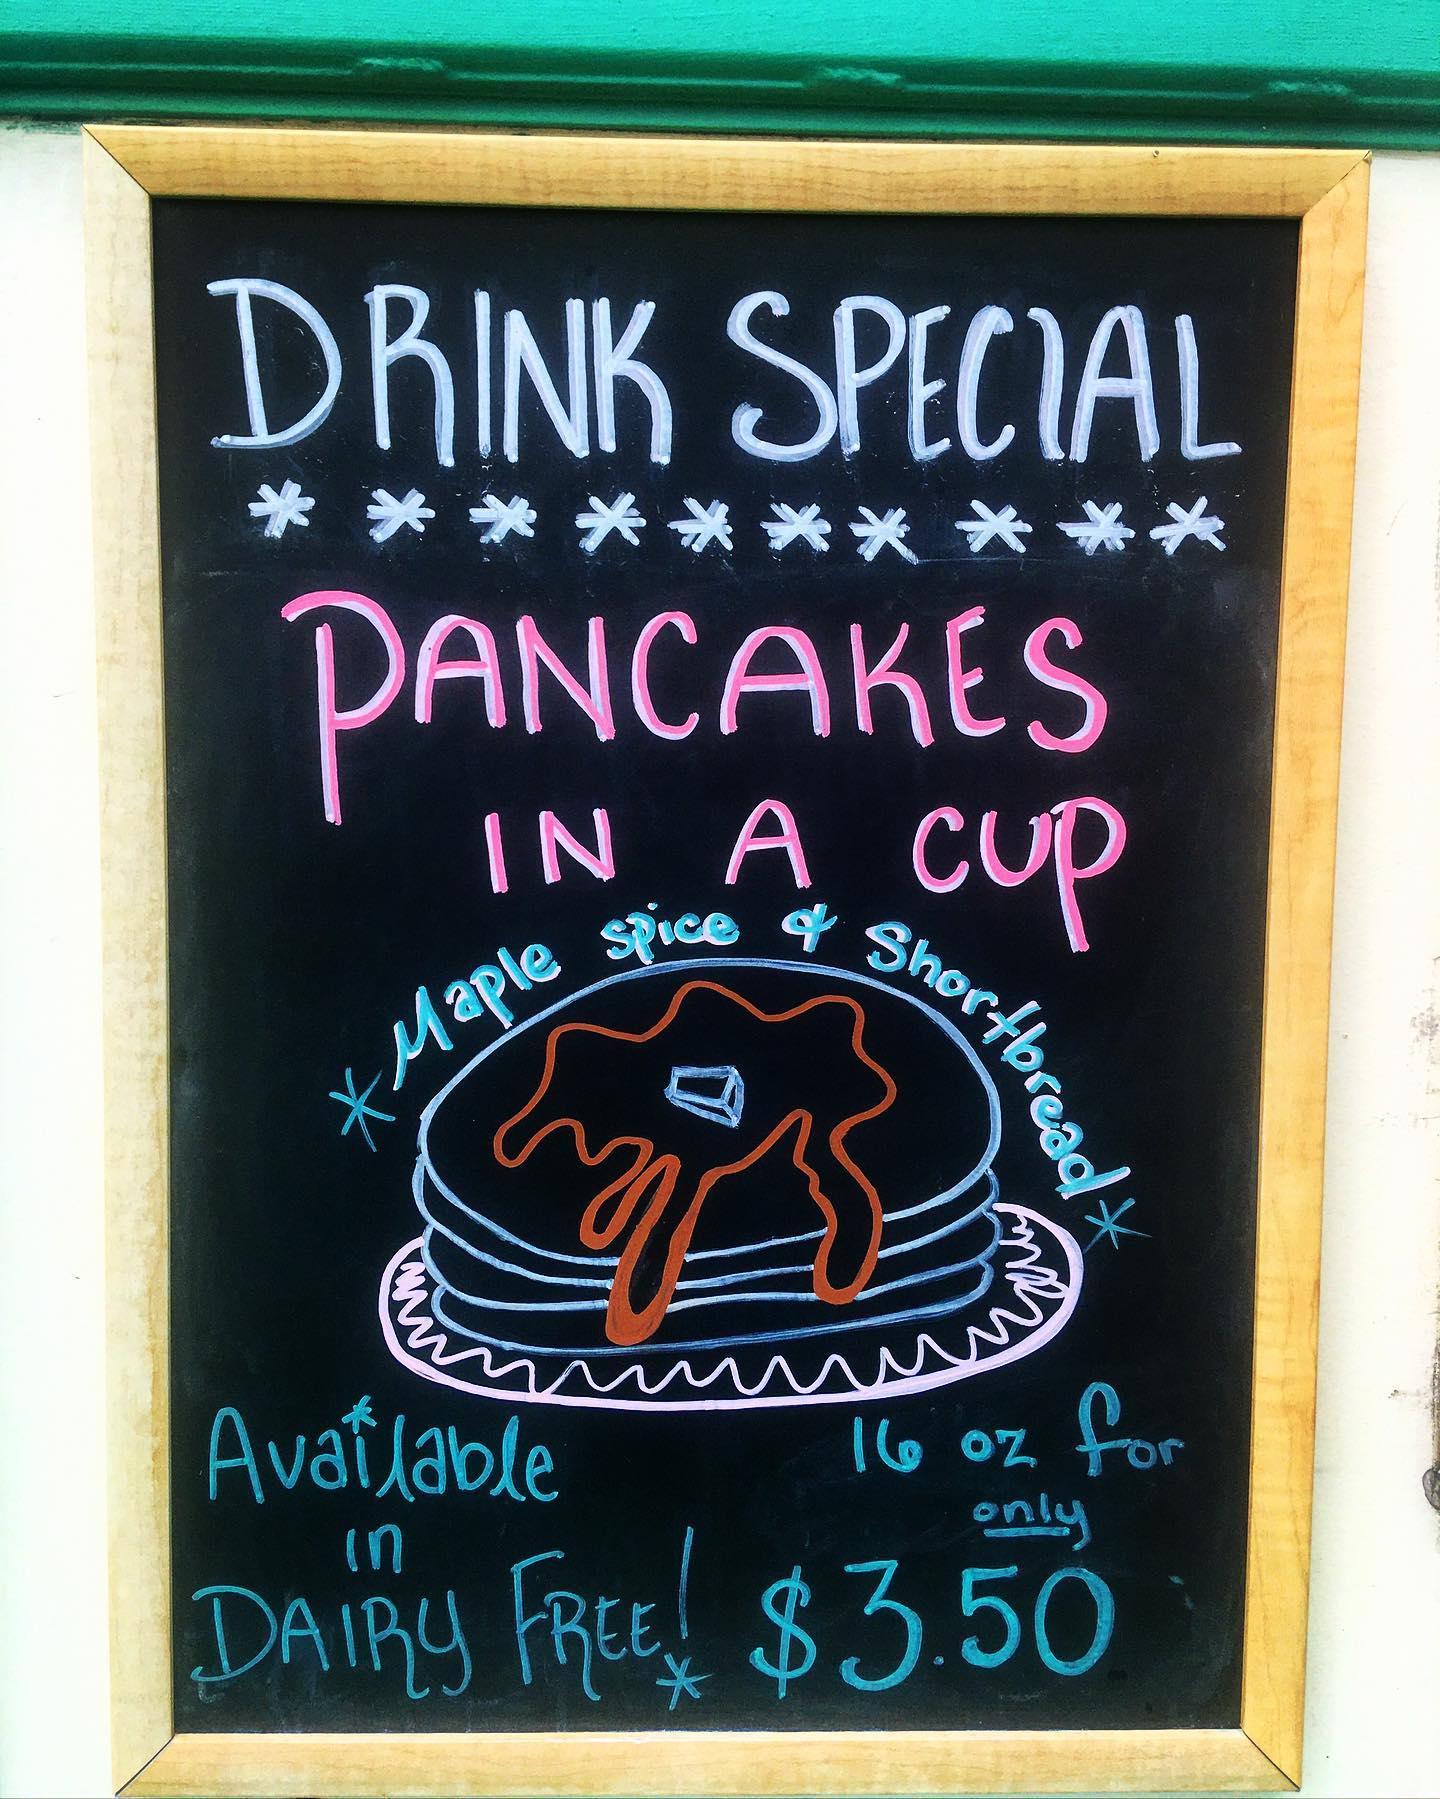 DRINK SPECIAL
* * * * * * * * * *
PANCAKES
IN A CUP
* Maple spice & Shortbread *
Available
in
DAIRY FREE!
16 oz for
only
$3.50